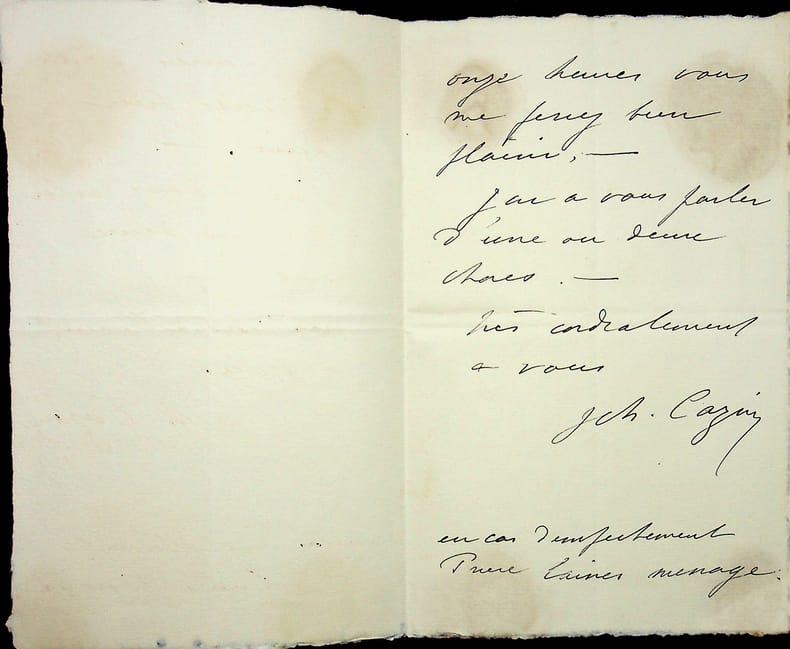 onze heures vous
me ferez bien
plaisir, —
J'ai a vous parler
d'une ou deux
choses. —
très cordialement
a vous
J Ch. Cazin
en cas d'empechement
Priere laisser message.